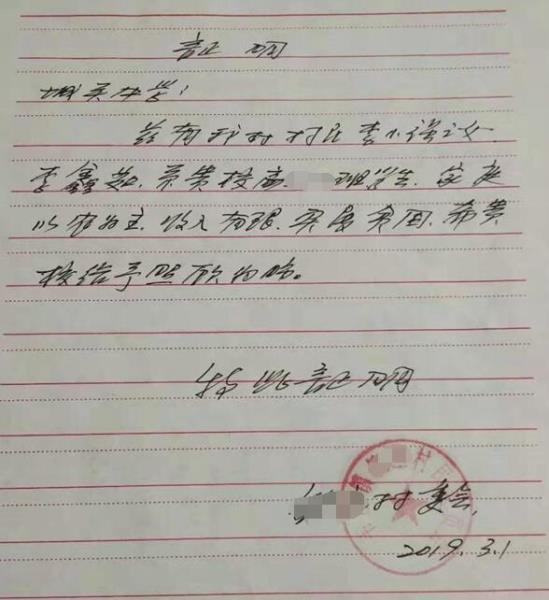 证明
城关中学:
兹有我村村民李小强之女
李鑫茹,系贵校高 班学生,家庭
以农为主,收入有限,实属贫困,希贵
校给予照顾为盼。
特此证明
村委会
2019.3.1
村